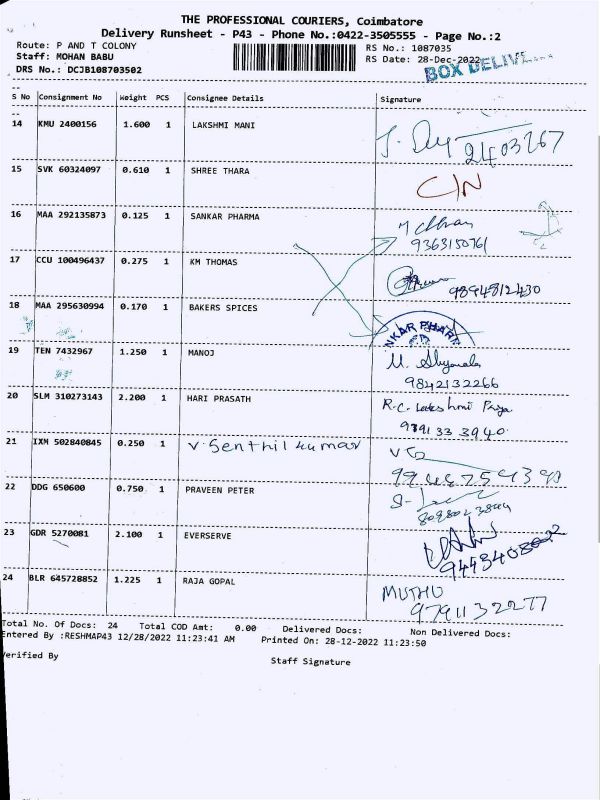 THE PROFESSIONAL COURIERS, Coimbatore
Delivery Runsheet - P43 - Phone No.:0422-3505555 - Page No.:2
Route: P AND T COLONY RS No.: 1087035
Staff: MOHAN BABU RS Date: 28-Dec-2022
DRS No.: DCJB108703502 BOX DELIVE
S No Consignment No Weight PCS Consignee Details Signature
14 KMU 2400156 1.600 1 LAKSHMI MANI
2403267
15 SVK 60324097 0.610 1 SHREE THARA C/N
16 MAA 292135873 0.125 1 SANKAR PHARMA
9363150761
17 CCU 100496437 0.275 1 KM THOMAS
9894812430
18 MAA 295630994 0.170 1 BAKERS SPICES
NKAR PHARM
19 TEN 7432967 1.250 1 MANOJ
9842132266
20 SLM 310273143 2.200 1 HARI PRASATH R.C. Lakshmi Priya
9791 33 3940
21 IXM 502840845 0.250 1 V. Senthil kumar
22 DDG 650600 0.750 1 PRAVEEN PETER
23 GDR 5270081 2.100 1 EVERSERVE
24 BLR 645728852 1.225 1 RAJA GOPAL MUTHU
9791132277
Total No. Of Docs: 24 Total COD Amt: 0.00 Delivered Docs: Non Delivered Docs:
Entered By :RESHMAP43 12/28/2022 11:23:41 AM Printed On: 28-12-2022 11:23:50
Verified By Staff Signature